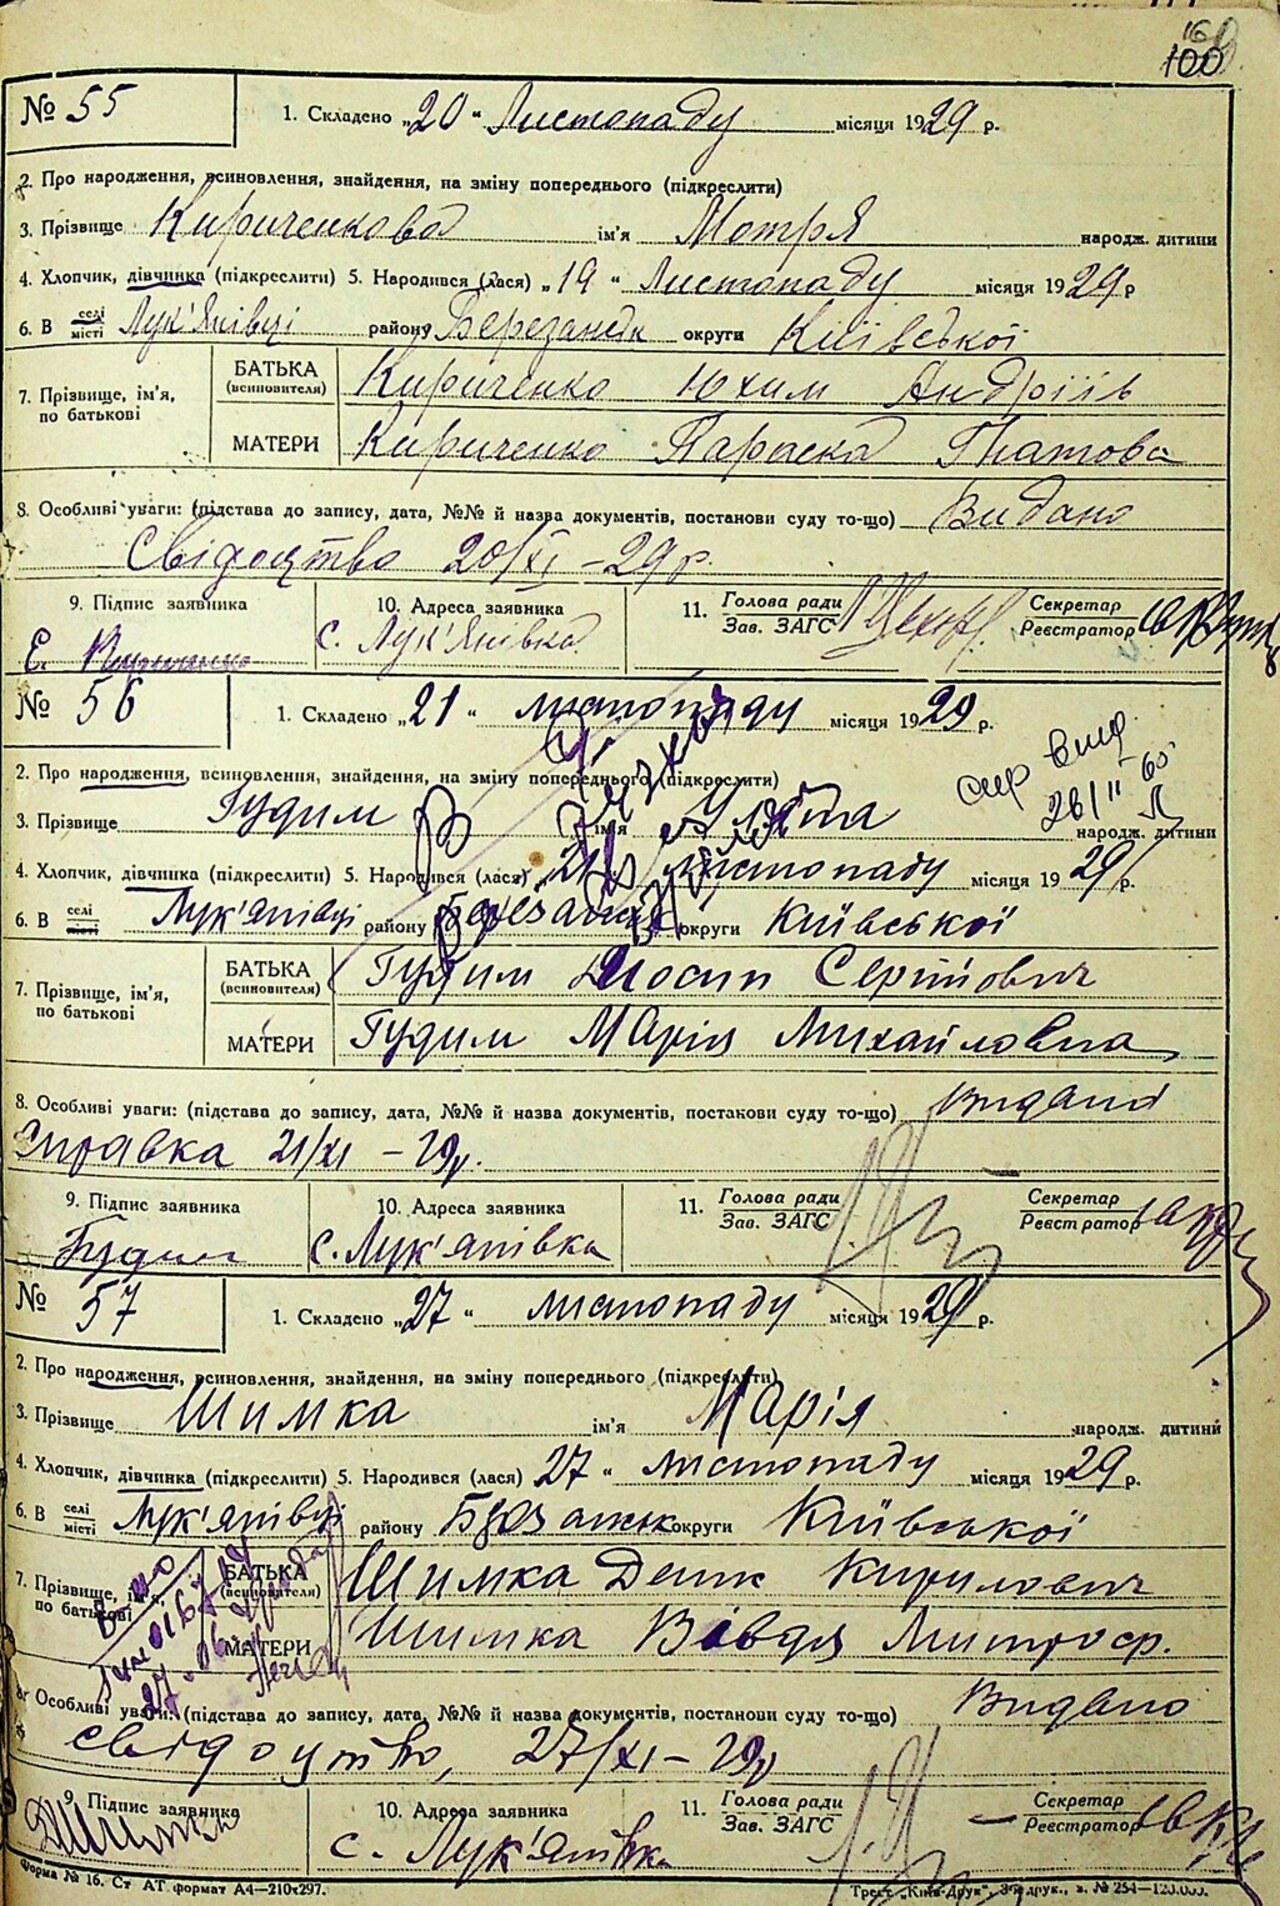 100
№ 55
1. Складено „20“ Листопаду місяця 1929 р.
2. Про народження, всиновлення, знайдення, на зміну попереднього (підкреслити)
3. Прізвище Кириченкова ім'я Мотря народж. дитини
4. Хлопчик, дівчинка (підкреслити) 5. Народився (лася) „19“ Листопаду місяця 1929 р
6. В селі місті Лук'янівці району Березанськ округи Київської
7. Прізвище, ім'я, по батькові
БАТЬКА (всиновителя) Кириченко Юхим Андріїв
МАТЕРИ Кириченко Параска Гнатова
8. Особливі уваги: (підстава до запису, дата, №№ й назва документів, постанови суду то-що) Видано
Свідоцтво 20/XI – 29 р.
9. Підпис заявника
10. Адреса заявника с. Лук'янівка
11. Голова ради Зав. ЗАГС Секретар Реєстратор
№ 56
1. Складено „21“ листопаду місяця 1929 р.
2. Про народження, всиновлення, знайдення, на зміну попереднього (підкреслити)
26/II 65
3. Прізвище Гудим ім'я народж. дитини
4. Хлопчик, дівчинка (підкреслити) 5. Народився (лася) „21 листопаду місяця 1929 р.
6. В селі місті Лук'янівці району округи Київської
7. Прізвище, ім'я, по батькові
БАТЬКА (всиновителя) Гудим Йосип Сергійович
МАТЕРИ Гудим Марія Михайловна
8. Особливі уваги: (підстава до запису, дата, №№ й назва документів, постакови суду то-що) Видано
Справка 21/XI – 29 р.
9. Підпис заявника Гудим
10. Адреса заявника с. Лук'янівка
11. Голова ради Зав. ЗАГС Секретар Реєстратор
№ 57
1. Складено „27“ листопаду місяця 1929 р.
2. Про народження, всиновлення, знайдення, на зміну попереднього (підкреслити)
3. Прізвище Шимка ім'я Марія народж. дитини
4. Хлопчик, дівчинка (підкреслити) 5. Народився (лася) 27 “ листопаду місяця 1929 р.
6. В селі місті Лук'янівці району округи Київської
7. Прізвище, ім'я, по батькові
БАТЬКА (всиновителя) Шимка Денис Кирилович
МАТЕРИ Шимка Вівдя Митроф.
8. Особливі уваги: (підстава до запису, дата, №№ й назва документів, постанови суду то-що) Видано
свідоцтво, 27/XI – 29 р
9. Підпис заявника Д Шимка
10. Адреса заявника с. Лук'янівка
11. Голова ради Зав. ЗАГС Секретар Реєстратор
Форма № 16. Ст АТ формат А4—210х297.
Трест „Київ-Друк“, друк., з. № 254—120.000.